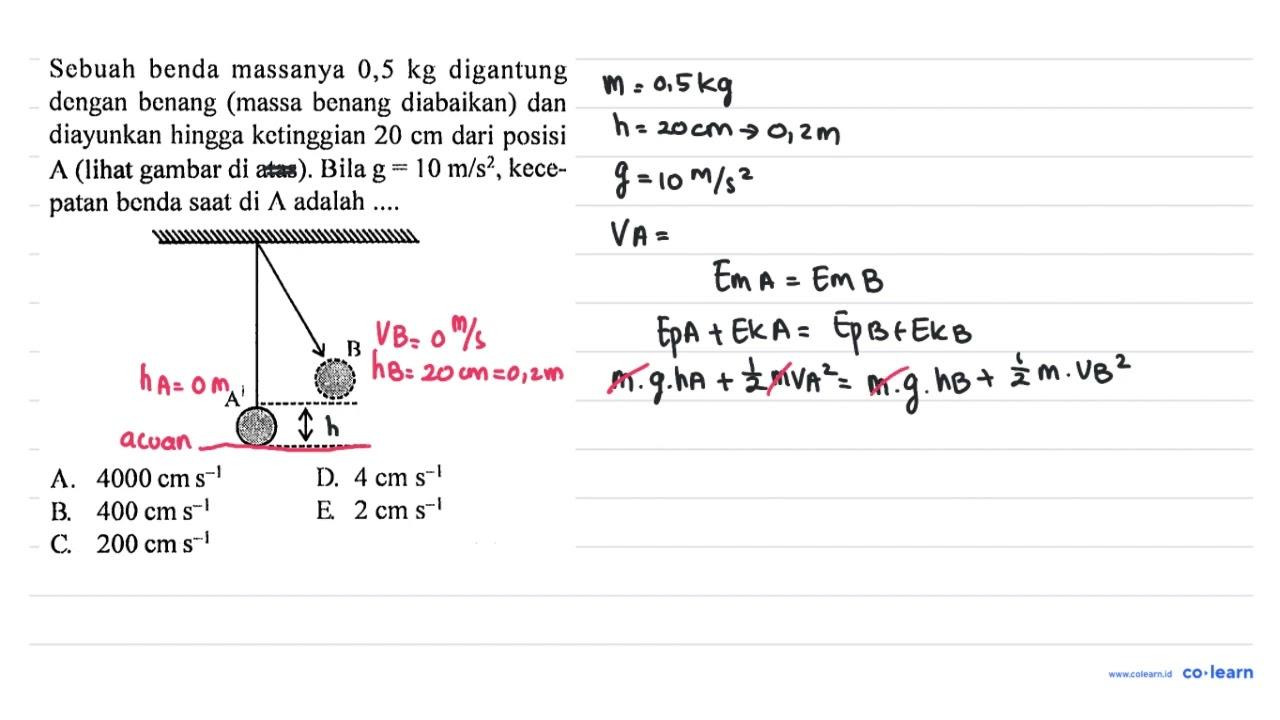 Sebuah benda massanya 0,5 kg digantung
dengan benang (massa benang diabaikan) dan
diayunkan hingga ketinggian 20 cm dari posisi
A (lihat gambar di atas). Bila g = 10 m/s², kece-
patan benda saat di A adalah ....
B
A
h
VB = 0 m/s
hB = 20 cm = 0,2 m
hA = 0 m
acuan
A. 4000 cm s⁻¹
B. 400 cm s⁻¹
C. 200 cm s⁻¹
D. 4 cm s⁻¹
E. 2 cm s⁻¹
m = 0,5 kg
h = 20 cm → 0,2 m
g = 10 m/s²
VA =
Em A = Em B
EpA + EkA = EpB + EkB
m.g.hA + ½ mVA² = m.g.hB + ½ m.VB²
www.colearn.id
co·learn